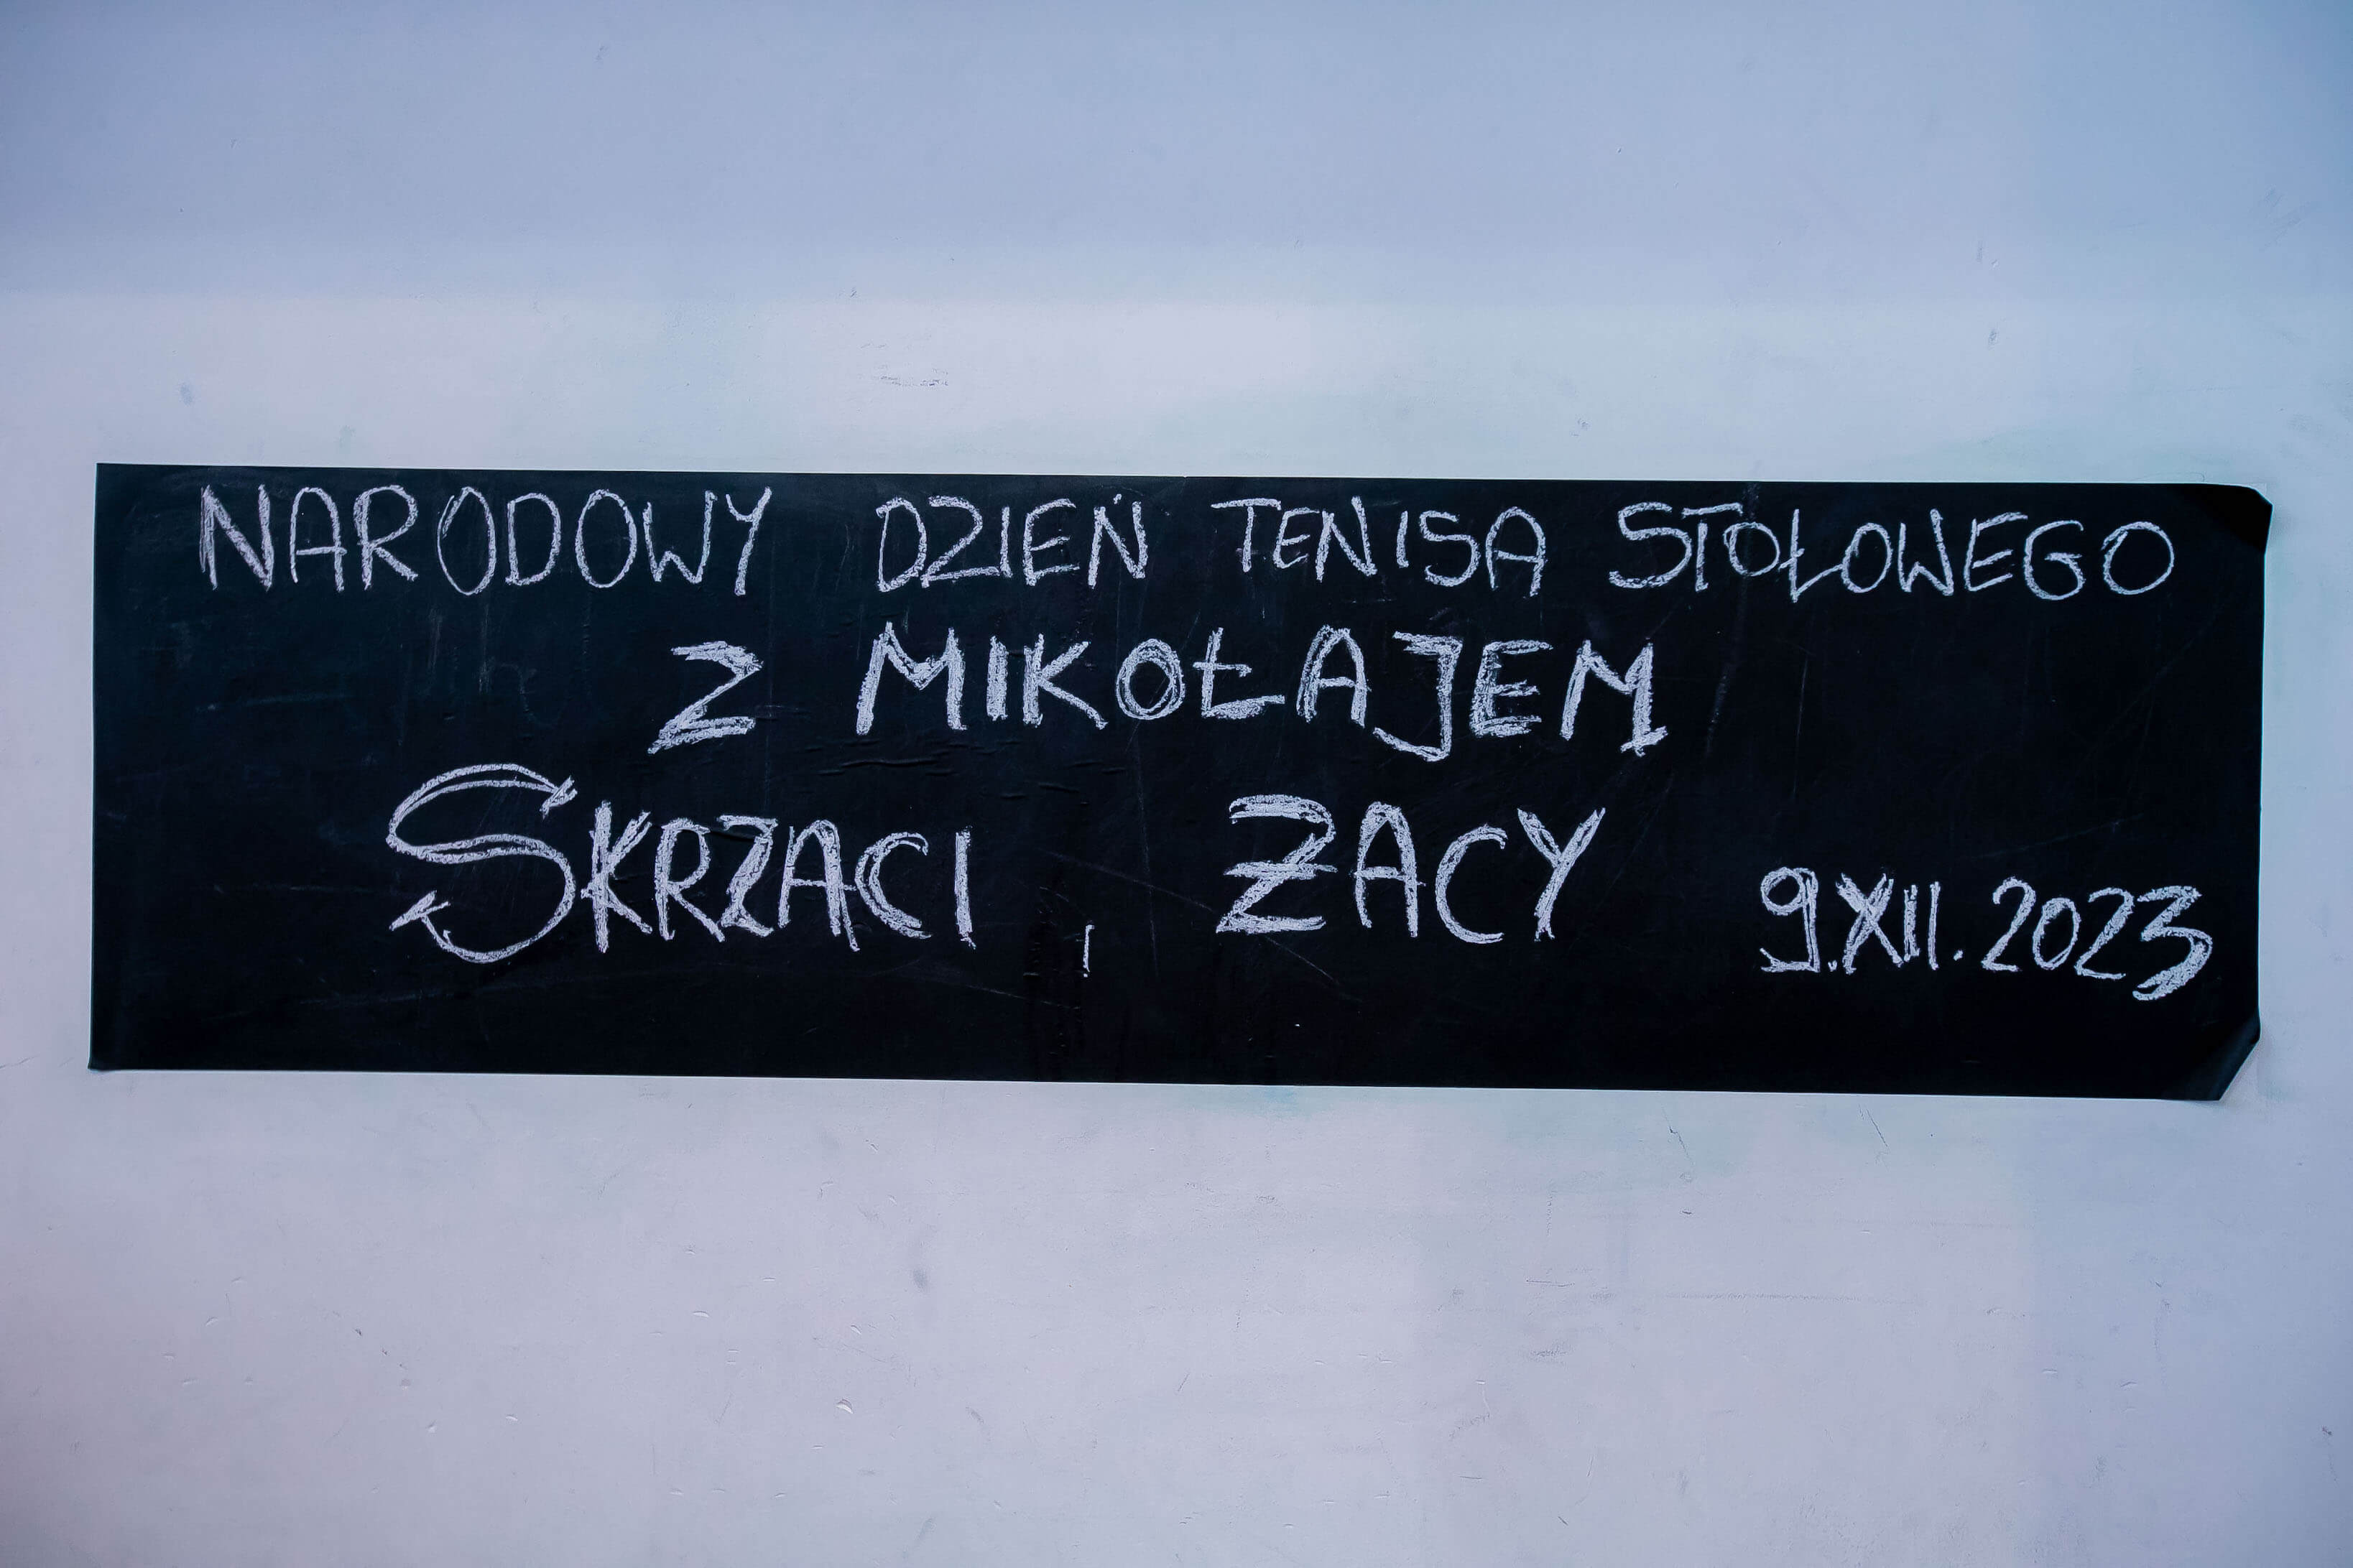 NARODOWY DZIEŃ TENISA STOŁOWEGO
Z MIKOŁAJEM
SKRZACI , ŻACY
9.XII.2023